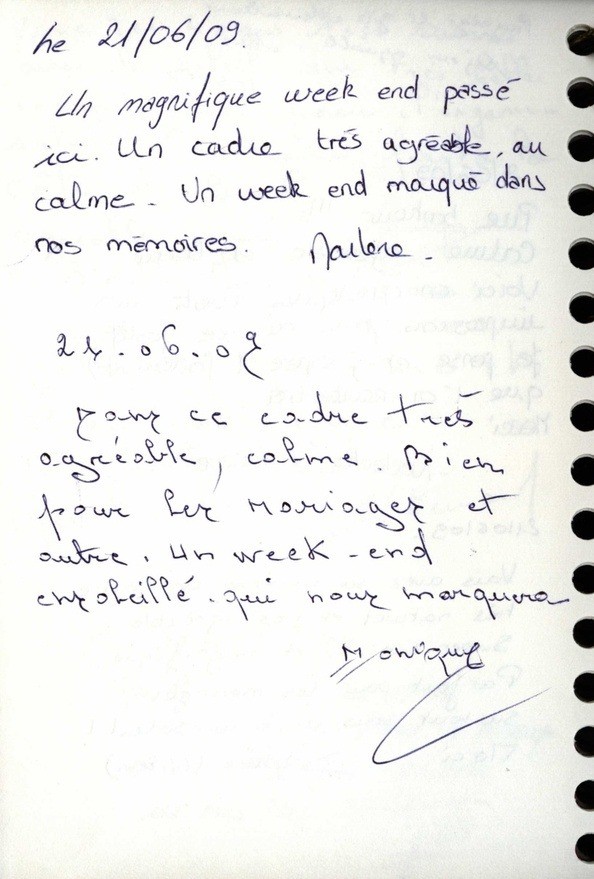 Le 21/06/09.
Un magnifique week end passé
ici. Un cadre trés agréable, au
calme. Un week end marqué dans
nos mémoires. Marlene.
21.06.09
Dans ce cadre très
agréable, calme. Bien
pour les mariages et
autre. Un week-end
ensoleillé. qui nous marquera
Monique